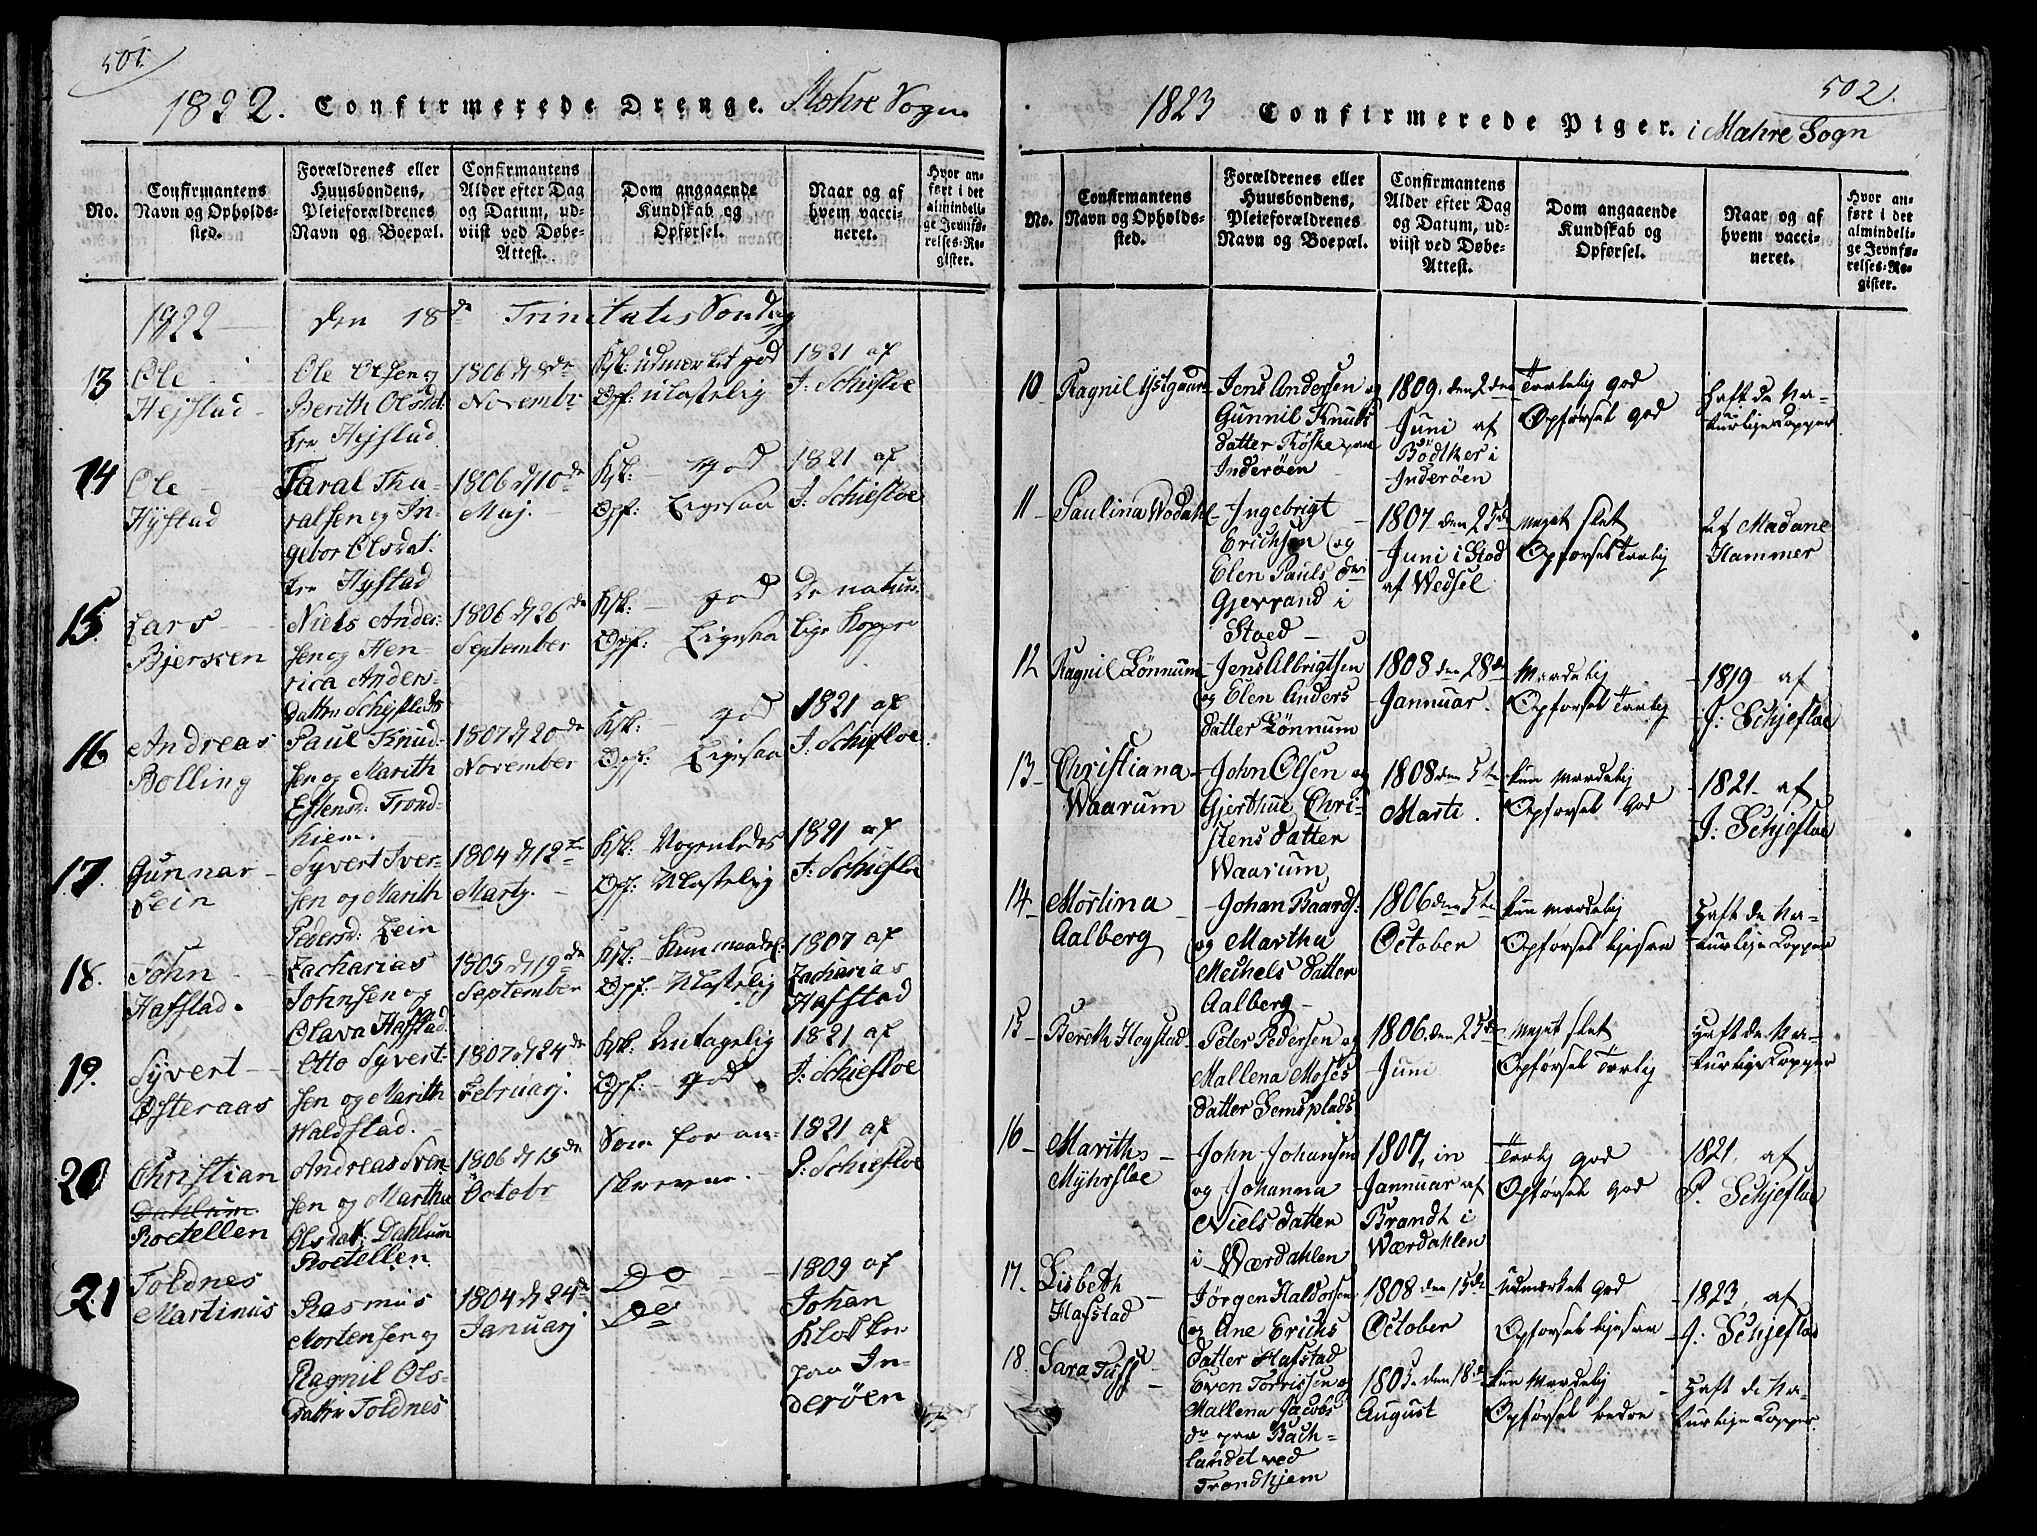 501.
1822. Confirmerede Drenge. Mæhre Sogn.
No.
Confirmantens
Navn og Opholds-
sted.
Forældrenes eller
Huusbondens,
Pleieforældrenes
Navn og Boepæl.
Confirmantens
Alder efter Dag
og Datum, ud-
viist ved Døbe-
Attest.
Dom angaaende
Kundskab og
Opførsel.
Naar og af
hvem vacci-
neret.
Hvor an-
ført i det
almindeli-
ge Jevnfø-
relses-Re-
gister.
1822
den 18de Trinitatis Søndag
13
Ole
Hejstad
Ole Olsen og
Berith Olsdat.
fra Hejstad
1806 d 8de
Novembr
Ksk: udmerket god
Opf: ulastelig
1821 af
J: Schiefloe
14
Ole
Hÿstad
Taral Tha-
ralsen og In-
gebor Olsdat.
fra Hÿstad
1806 d 10de
Maj.
Ksk: god
Opf: Ligesaa
1821 af
J. Schiefloe
15
Lars
Bjerken
Niels Ander-
sen og Hen-
rica Anders-
datter
1806 d 26de
September
Ksk: god
Opf: Ligesaa
De natur-
lige Kopper
16
Andreas
Bolling
Paul Knud-
sen og Marith
Estensd: Trond-
hiem.
1807 d 20de
November
Ksk: god
Opf: Ligesaa
1821 af
J. Schiefloe
17
Gunnar
Lein
Syvert Iver-
sen og Marith
Pedersd: Lein
1804 d 12te
Martj.
Ksk: Nogenledes
Opf: Ulastelig
1821 af
J: Schiefloe
18.
John
Hafstad.
Zacharias
Johnsen og
Olava Hafstad.
1805 d 19de
September
Ksk: Kun maadel:
Opf: Ulastelig
1807 af
Zacharias
Hafstad
19.
Syvert
Østeraas
Otto Syvert-
sen og Marith
Waldstad.
1807 d 24de
Februarj.
Ksk: Antagelig
Opf: god
1821 af
J: Schiefloe
20
Christian
Dahlum.
Roetellen
Andreas Sven-
sen og Martha
Olsdat: Dahlum
Roetellen
1806 d 15de
Octobr
Som foran-
skrevne.
1821 af
P: Schiefloe
21
Toldnes
Martinus
Rasmus
Mortensen og
Ragnil Ols-
datter Toldnes
1804 d 24de
Januarj
Do
Do
1809 af
Johan
Klokker
paa In-
derøen
502.
1823 Confirmerede Piger. i Mæhre Sogn
No.
Confirmantens
Navn og Opholds-
sted.
Forældrenes eller
Huusbondens,
Pleieforældrenes
Navn og Boepæl.
Confirmantens
Alder efter Dag
og Datum, ud-
viist ved Døbe-
Attest.
Dom angaaende
Kundskab og
Opførsel.
Naar og af
hvem vacci-
neret.
Hvor an-
ført i det
almindeli-
ge Jevnfø-
relses-Re-
gister.
10
Ragnil Ystgaard
Jens Andersen og
Gunnil Knuds
datter Røske paa
Inderøen
1809. den 2den
Juni af
Bödtker i
Inderöen
Temelig god
Opførsel god
Haft de Na-
turlige Kopper
11
Paulina Wodahl
Ingebrigt
Erichsen og
Elen Pauls dr
Gjerrand i
Stoed
1807 den 25de
Juni i Stod
af Wedsel
Meget slet
Opførsel
af Madame
Hammer
12
Ragnil Lønnum
Jens Albrigtsen
og Elen Anders
datter Lønnum
1808 den 28de
Jannuar.
Maadelig
Opførsel
1819 af
J: Schjefloe
13
Christiana
Waarum
John Olsen og
Gjerthue Chri-
stens datter
Waarum
1808 den 5te
Marti.
kun maadelig
Opførsel god
1821 af
J: Schjefloe
14
Mortina
Aalberg
Johan Baards.
og Martha
Meihels datter
Aalberg
1806 den 5te
October
kun maadelig
Opførsel ligesaa
Haft de Na-
turlige Kopper
15
Bereth Hogstad
Peter Pedersen og
Mallena Moses
datter Semsplads
1806. den 25de
Juni
Meget slet
Opførsel
Haft de Na-
turlige Kopper
16
Marith
Mÿhrsloe
John Johansen
og Johanna
Niels datter
i Wærdahlen
1807, in
Jannuar af
Brandt i
Wærdahlen
god
Opførsel god
1821. af
P. Schjefloe
17.
Lisbeth
Hafstad
Jørgen Haldorsen
og Ane Erichs
datter Hafstad
1808 den 15de
October
Udmærket god
Opførsel ligesaa
1823, af
J: Schjefloe
18.
Sara Tuss
Even Torrissen og
Mallena Jacobs
dr paa Bach-
landet ved
Trondhjem
1805. den 18de
August
kun Maadelig
Opførsel bedre
Haft de Na-
turlige Kopper.